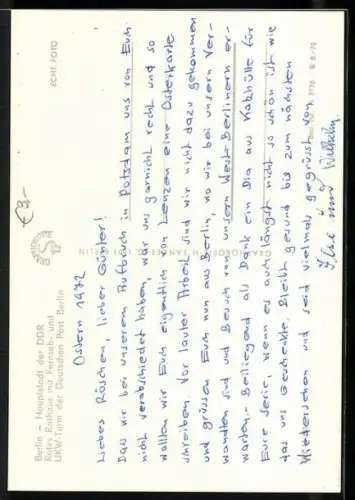 Berlin — Hauptstadt der DDR
Rotes Rathaus mit Fernseh- und
UKW-Turm der Deutschen Post Berlin
ECHT FOTO
€3,-
Ostern 1972
Liebes Röschen, lieber Günter!
Das wir bei unserem Aufbruch in Potsdam uns von Euch
nicht verabschiedet haben, war uns garnicht recht und so
wollten wir Euch eigentlich von Lenzen eine Osterkarte
schreiben. Vor lauter Arbeit sind wir nicht dazu gekommen
und grüssen Euch nun aus Berlin, wo wir bei unsern Ver-
wandten sind und Besuch von unsern West-Berlinern er-
warten. - Beiliegend als Dank ein Dia aus Kalkhülle für
Eure Serie, wenn es auch längst nicht so schön ist wie
das uns Geschenkte. Bleibt gesund bis zum nächsten
Wiedersehen und seid vielmals gegrüsst von
Ilse und Wilhelm.